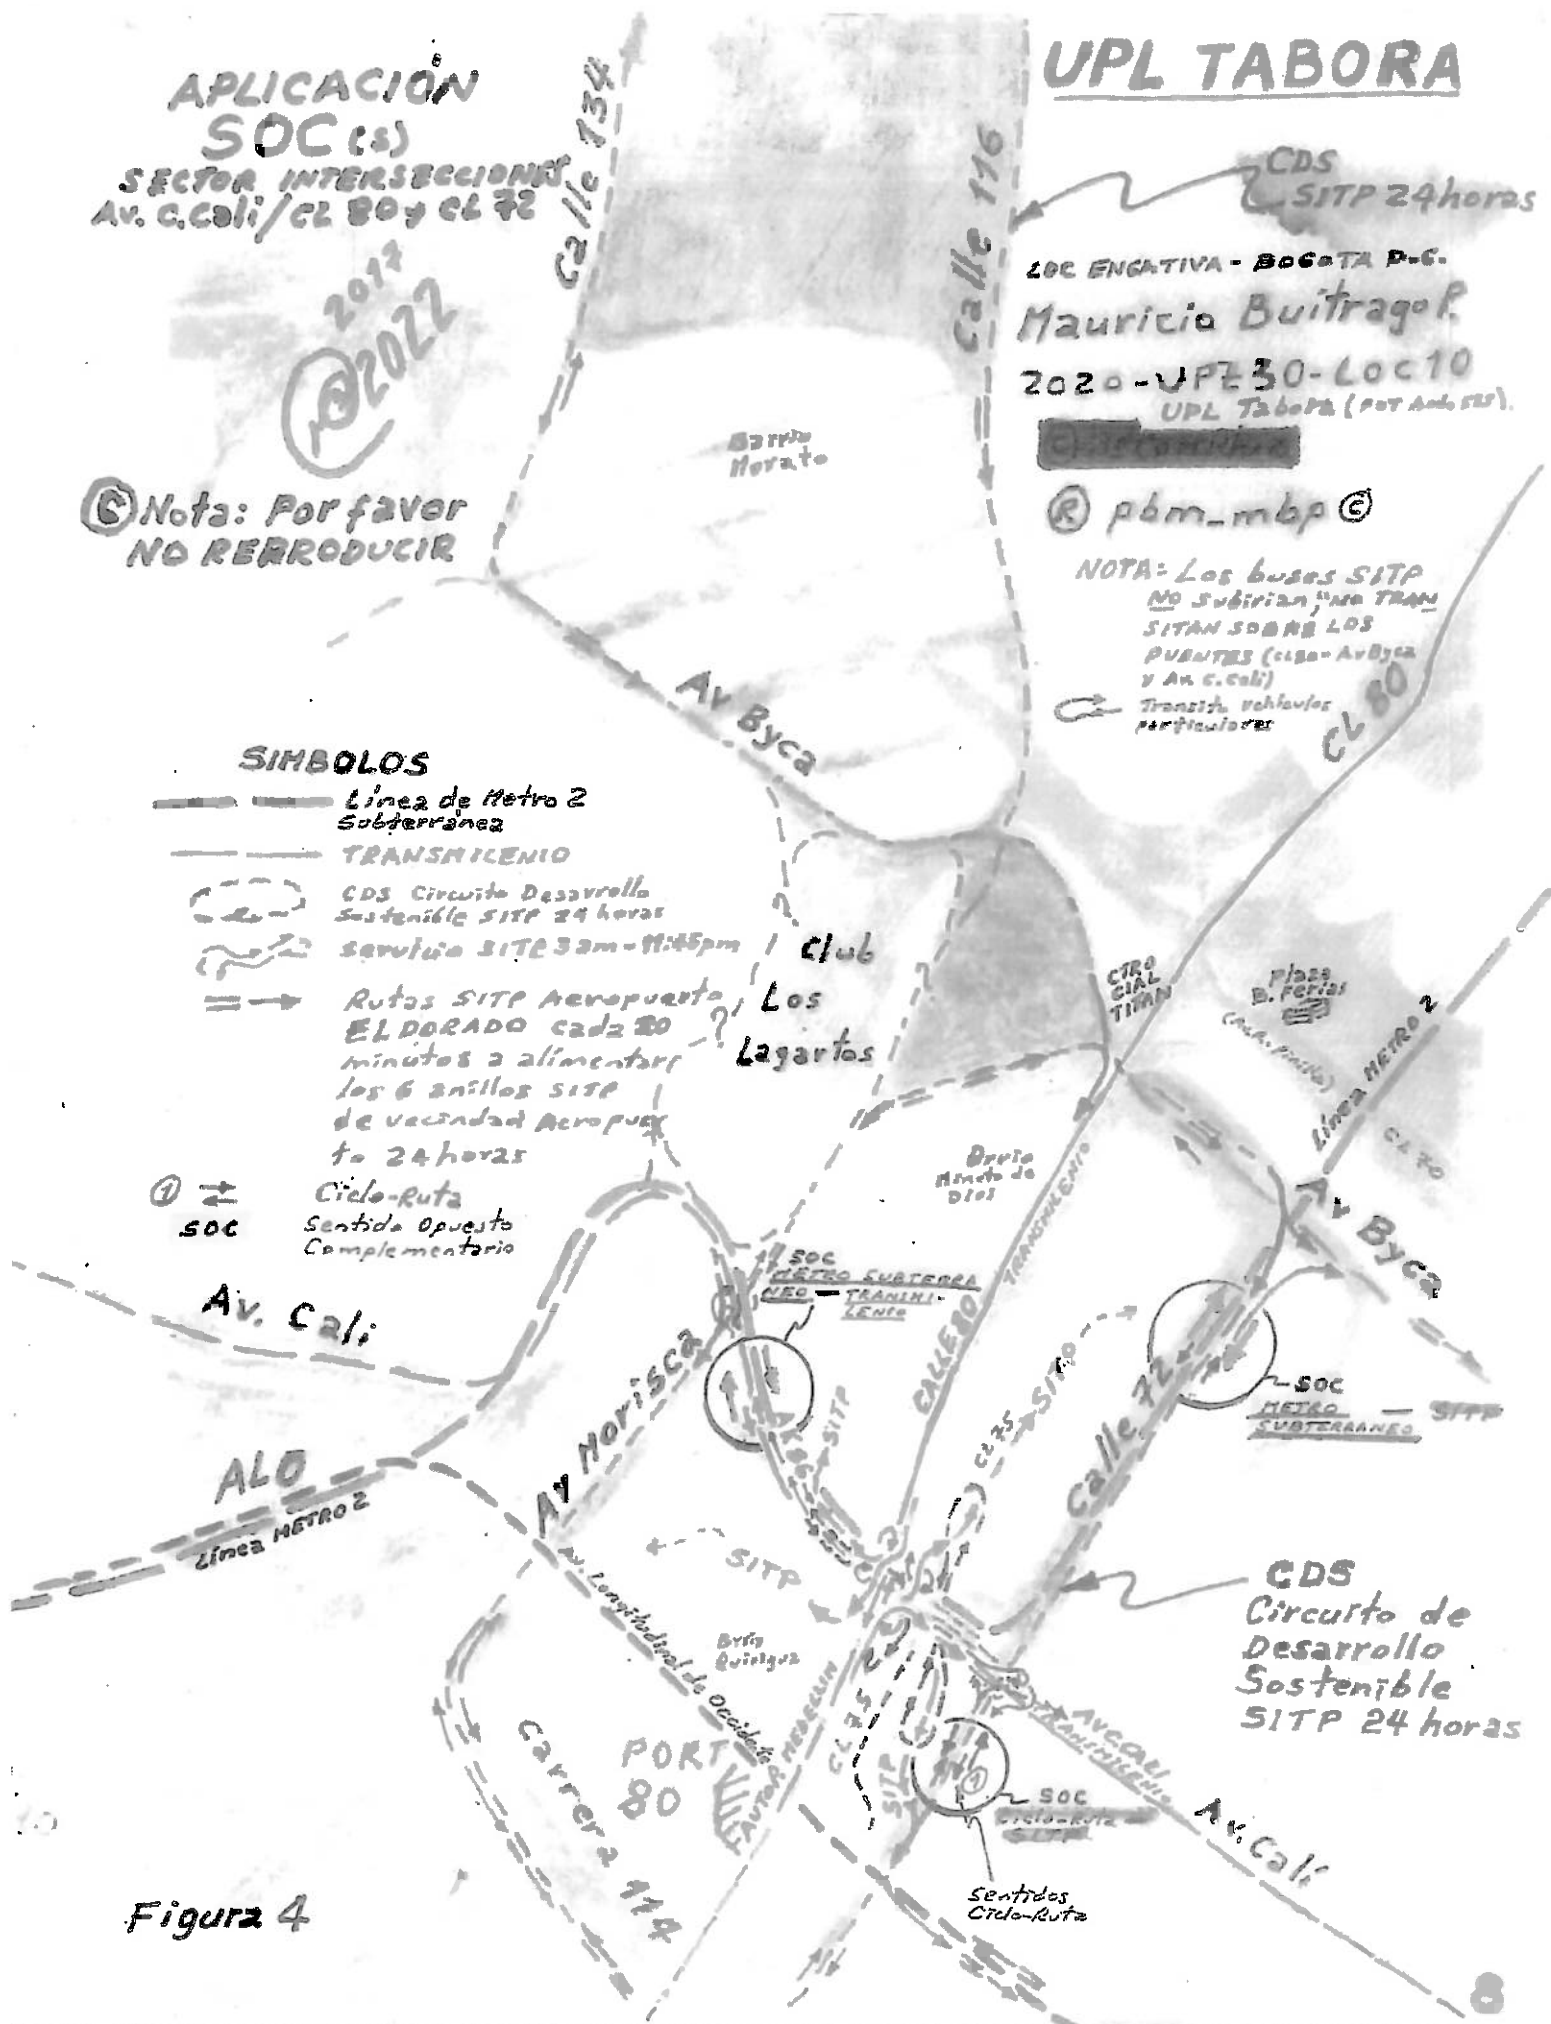 APLICACIÓN
SOC (s)
SECTOR INTERSECCIONES
Av. C. Cali/CL 80 y CL 72
2017
@2022
© Nota: Por favor
NO REPRODUCIR
Calle 134
Calle 116
UPL TABORA
CDS
SITP 24 horas
LOC ENGATIVA - BOGOTA D.C.
Mauricio Buitrago P.
2020 - UPZ30 - LOC10
UPL Tabora
® pbm_mbp ©
NOTA: Los buses SITP
NO subirian, "NO TRAN
SITAN SOBRE LOS
PUENTES (CL80 - Av Byca
y Av. C. Cali)
Transito vehiculos
particulares
CL 80
Barrio
Morato
Av Byca
SIMBOLOS
Línea de Metro 2
Subterránea
TRANSMILENIO
CDS Circuito Desarrollo
Sostenible SITP 24 horas
Servicio SITP 3am - 11:45pm
Rutas SITP Aeropuerto
EL DORADO cada 20
minutos a alimentar
los 6 anillos SITP
de vecindad Aeropuer
to 24 horas
① Ciclo-Ruta
SOC Sentido Opuesto
Complementario
Club
Los
Lagartos
CTRO
CIAL
TITAN
Plaza
B. Ferias
Línea METRO 2
CL 70
Minuto de
Dios
TRANSMILENIO
Av Byca
SOC
METRO SUBTERRA
NEO - TRANSMI-
LENIO
Av. Cali
Av Morisca
CALLE 80
AK 86
SITP
CL 75
SITP
Calle 72
SOC
METRO - SITP
SUBTERRANEO
ALO
Línea METRO 2
SITP
Av. Longitudinal de Occidente
Quirigua
CDS
Circuito de
Desarrollo
Sostenible
SITP 24 horas
Carrera 114
PORT
80
AUTOP. MEDELLIN
CL 75
SITP
AV CALI
TRANSMILENIO
SOC
Ciclo-Ruta
SITP
Av. Cali
Sentidos
Ciclo-Ruta
Figura 4
8